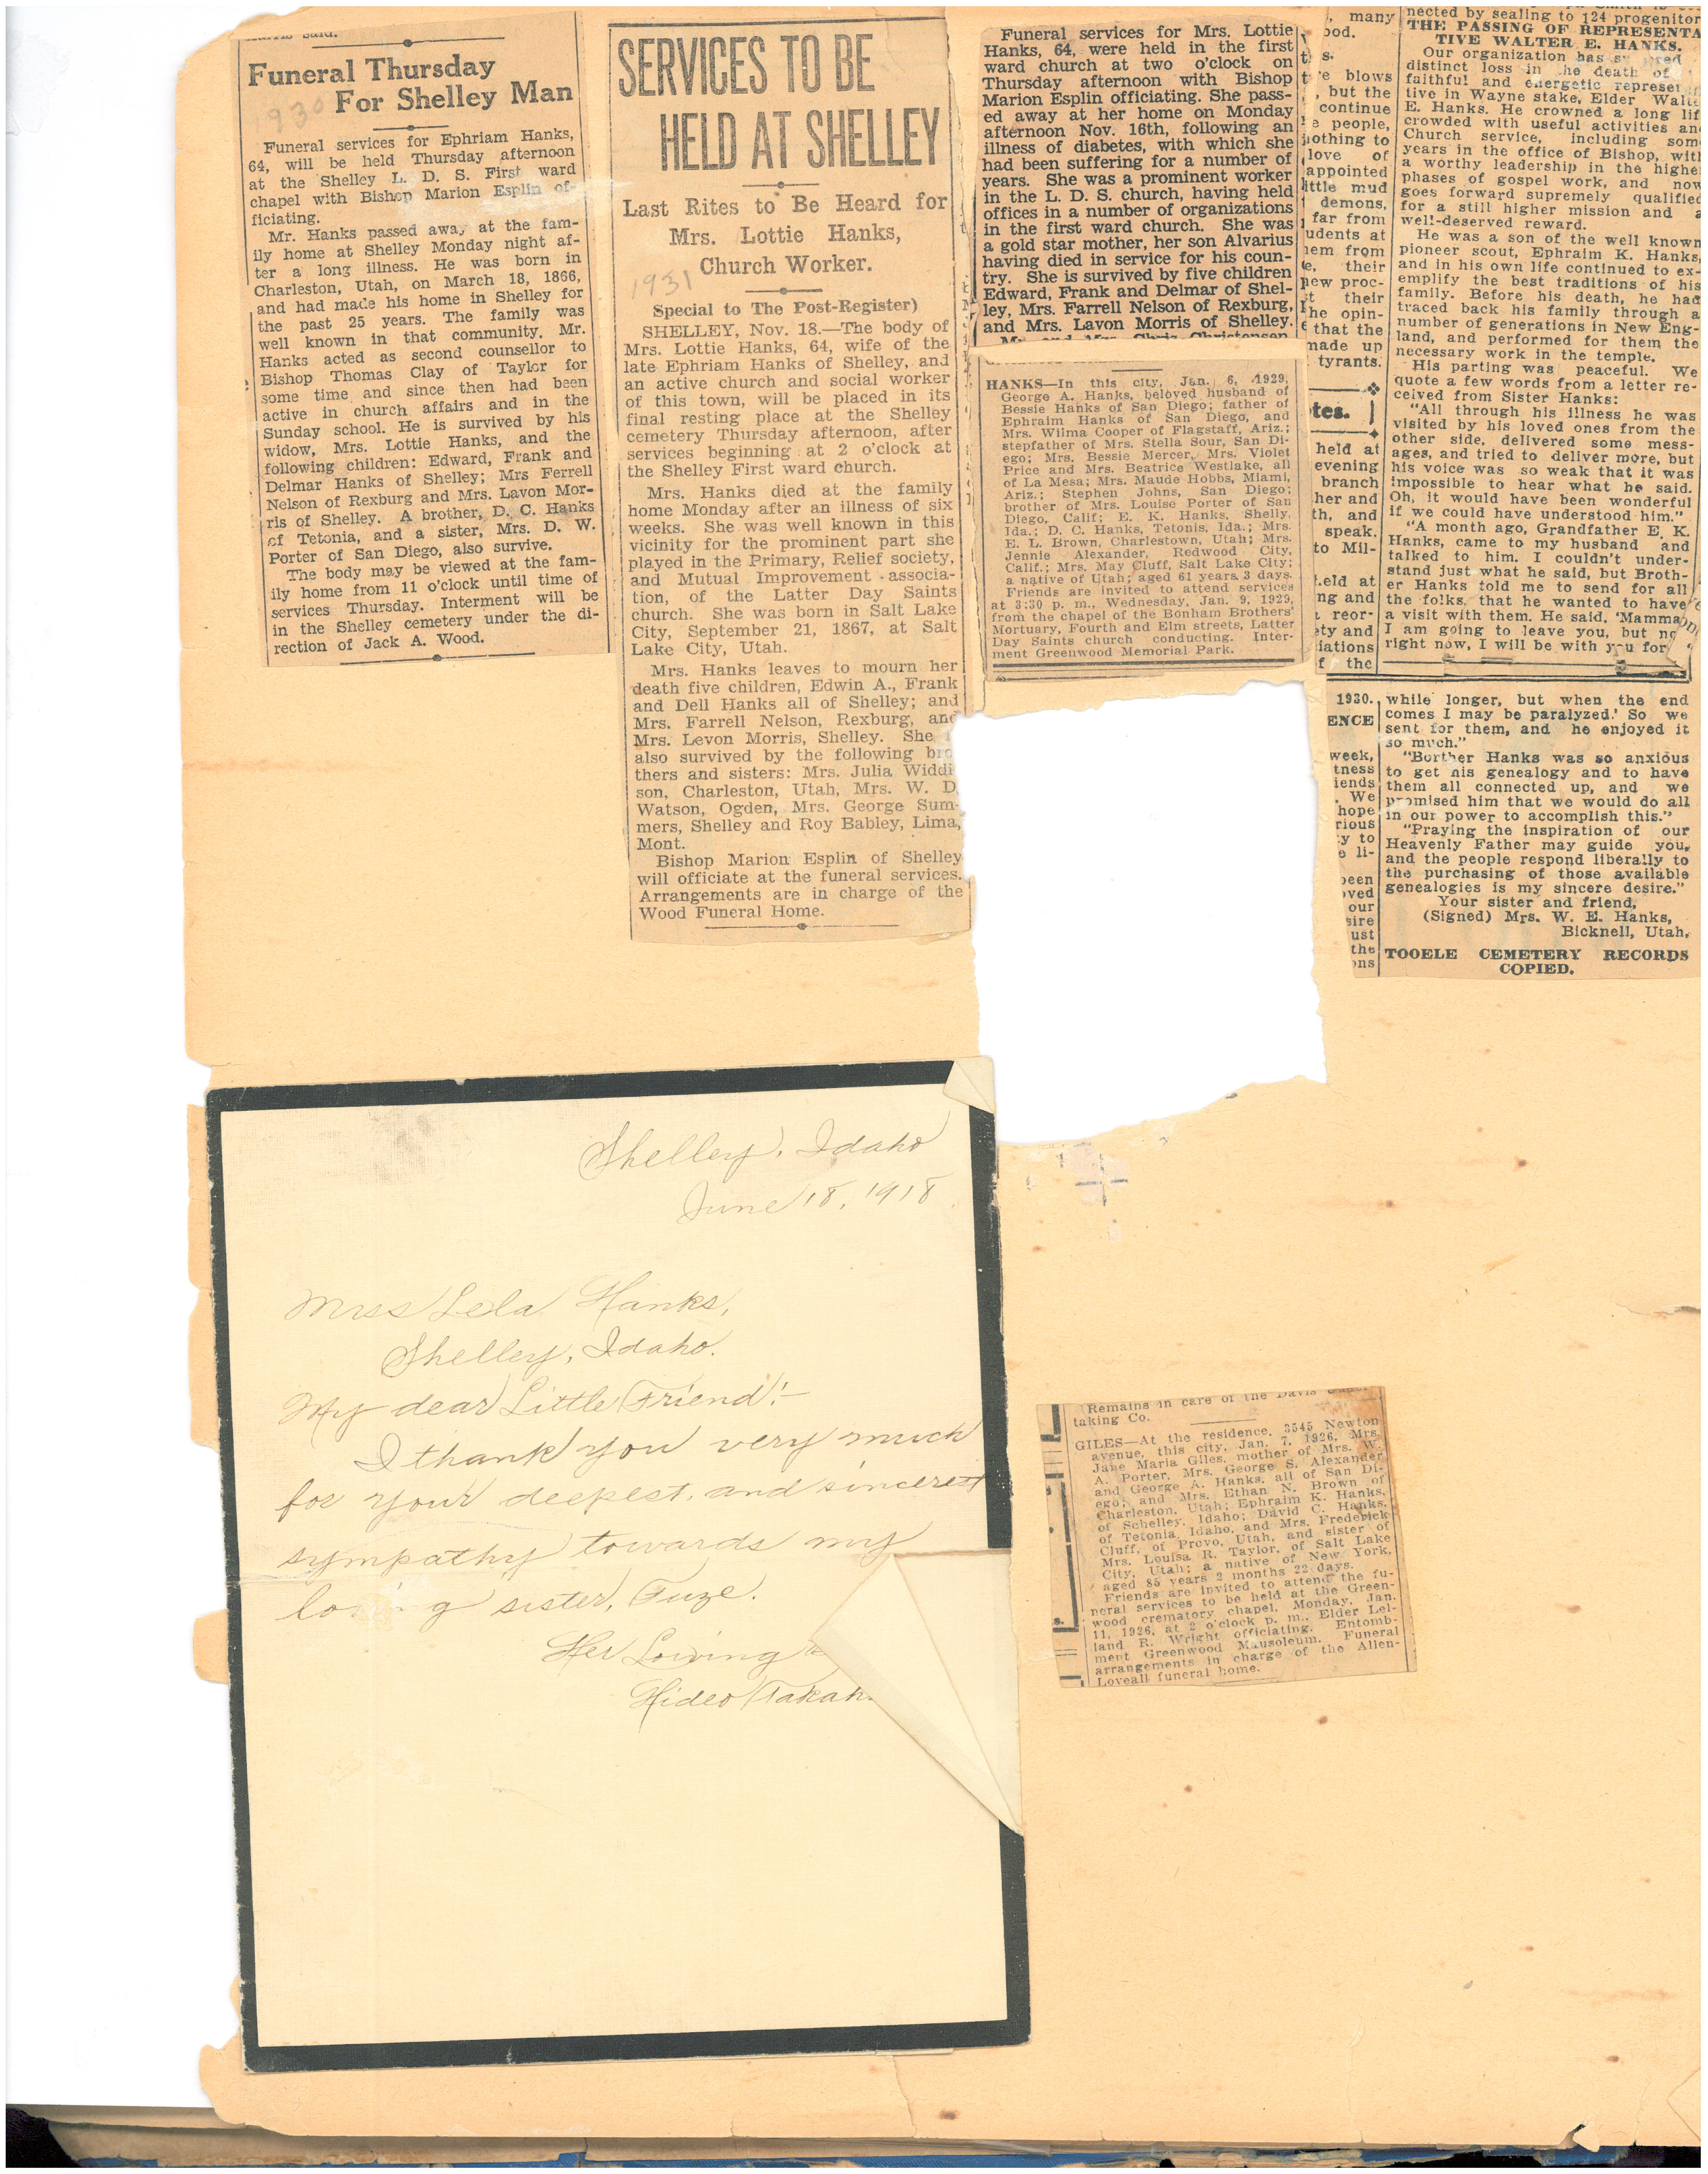 Funeral Thursday
For Shelley Man
1930
Funeral services for Ephriam Hanks,
64, will be held Thursday afternoon
at the Shelley L. D. S. First ward
chapel with Bishop Marion Esplin of-
ficiating.
Mr. Hanks passed away at the fam-
ily home at Shelley Monday night af-
ter a long illness. He was born in
Charleston, Utah, on March 18, 1866,
and had made his home in Shelley for
the past 25 years. The family was
well known in that community. Mr.
Hanks acted as second counsellor to
Bishop Thomas Clay of Taylor for
some time and since then had been
active in church affairs and in the
Sunday school. He is survived by his
widow, Mrs. Lottie Hanks, and the
following children: Edward, Frank and
Delmar Hanks of Shelley; Mrs Ferrell
Nelson of Rexburg and Mrs. Lavon Mor-
ris of Shelley. A brother, D. C. Hanks
of Tetonia, and a sister, Mrs. D. W.
Porter of San Diego, also survive.
The body may be viewed at the fam-
ily home from 11 o'clock until time of
services Thursday. Interment will be
in the Shelley cemetery under the di-
rection of Jack A. Wood.
SERVICES TO BE
HELD AT SHELLEY
Last Rites to Be Heard for
Mrs. Lottie Hanks,
Church Worker.
1931
Special to The Post-Register)
SHELLEY, Nov. 18.—The body of
Mrs. Lottie Hanks, 64, wife of the
late Ephriam Hanks of Shelley, and
an active church and social worker
of this town, will be placed in its
final resting place at the Shelley
cemetery Thursday afternoon, after
services beginning at 2 o'clock at
the Shelley First ward church.
Mrs. Hanks died at the family
home Monday after an illness of six
weeks. She was well known in this
vicinity for the prominent part she
played in the Primary, Relief society,
and Mutual Improvement associa-
tion, of the Latter Day Saints
church. She was born in Salt Lake
City, September 21, 1867, at Salt
Lake City, Utah.
Mrs. Hanks leaves to mourn her
death five children, Edwin A., Frank
and Dell Hanks all of Shelley; and
Mrs. Farrell Nelson, Rexburg, and
Mrs. Levon Morris, Shelley. She
also survived by the following bro
thers and sisters: Mrs. Julia Widdi
son, Charleston, Utah, Mrs. W. D.
Watson, Ogden, Mrs. George Sum-
mers, Shelley and Roy Babley, Lima,
Mont.
Bishop Marion Esplin of Shelley
will officiate at the funeral services.
Arrangements are in charge of the
Wood Funeral Home.
Funeral services for Mrs. Lottie
Hanks, 64, were held in the first
ward church at two o'clock on
Thursday afternoon with Bishop
Marion Esplin officiating. She pass-
ed away at her home on Monday
afternoon Nov. 16th, following an
illness of diabetes, with which she
had been suffering for a number of
years. She was a prominent worker
in the L. D. S. church, having held
offices in a number of organizations
in the first ward church. She was
a gold star mother, her son Alvarius
having died in service for his coun-
try. She is survived by five children
Edward, Frank and Delmar of Shel-
ley, Mrs. Farrell Nelson of Rexburg,
and Mrs. Lavon Morris of Shelley.
HANKS—In this city, Jan. 6, 1929,
George A. Hanks, beloved husband of
Bessie Hanks of San Diego; father of
Ephraim Hanks of San Diego, and
Mrs. Wilma Cooper of Flagstaff, Ariz.;
stepfather of Mrs. Stella Sour, San Di-
ego; Mrs. Bessie Mercer, Mrs. Violet
Price and Mrs. Beatrice Westlake, all
of La Mesa; Mrs. Maude Hobbs, Miami,
Ariz.; Stephen Johns, San Diego;
brother of Mrs. Louise Porter of San
Diego, Calif; E. K. Hanks, Shelly,
Ida.; D. C. Hanks, Tetonis, Ida.; Mrs.
E. L. Brown, Charlestown, Utah; Mrs.
Jennie Alexander, Redwood City,
Calif.; Mrs. May Cluff, Salt Lake City;
a native of Utah; aged 61 years 3 days.
Friends are invited to attend services
at 3:30 p. m., Wednesday, Jan. 9, 1929,
from the chapel of the Bonham Brothers'
Mortuary, Fourth and Elm streets, Latter
Day Saints church conducting. Inter-
ment Greenwood Memorial Park.
many
blows
but the
continue
people,
nothing to
love of
appointed
little mud
demons,
far from
udents at
em from
their
new proc-
their
he opin-
that the
made up
tyrants.
tes.
held at
evening
branch
her and
th, and
speak.
to Mil-
eld at
ng and
reor-
ety and
iations
f the
nected by sealing to 124 progenitor
THE PASSING OF REPRESENTA
TIVE WALTER E. HANKS.
Our organization has
distinct loss in the death of
faithful and energetic represen
tive in Wayne stake, Elder Walte
E. Hanks. He crowned a long lif
crowded with useful activities and
Church service, including som
years in the office of Bishop, with
a worthy leadership in the highe
phases of gospel work, and now
goes forward supremely qualified
for a still higher mission and a
well-deserved reward.
He was a son of the well known
pioneer scout, Ephraim K. Hanks,
and in his own life continued to ex-
emplify the best traditions of his
family. Before his death, he had
traced back his family through a
number of generations in New Eng-
land, and performed for them the
necessary work in the temple.
His parting was peaceful. We
quote a few words from a letter re-
ceived from Sister Hanks:
"All through his illness he was
visited by his loved ones from the
other side, delivered some mess-
ages, and tried to deliver more, but
his voice was so weak that it was
impossible to hear what he said.
Oh, it would have been wonderful
if we could have understood him."
"A month ago, Grandfather E. K.
Hanks, came to my husband and
talked to him. I couldn't under-
stand just what he said, but Broth-
er Hanks told me to send for all
the folks, that he wanted to have
a visit with them. He said, 'Mamma
I am going to leave you, but no
right now, I will be with you for
1930.
ENCE
week,
tness
iends
We
hope
rious
y to
li-
been
oved
our
sire
ust
the
ons
while longer, but when the end
comes I may be paralyzed.' So we
sent for them, and he enjoyed it
so much."
"Borther Hanks was so anxious
to get his genealogy and to have
them all connected up, and we
promised him that we would do all
in our power to accomplish this."
"Praying the inspiration of our
Heavenly Father may guide you,
and the people respond liberally to
the purchasing of those available
genealogies is my sincere desire."
Your sister and friend,
(Signed) Mrs. W. E. Hanks,
Bicknell, Utah.
TOOELE CEMETERY RECORDS
COPIED.
Shelley, Idaho
June 18, 1918.
Miss Lela Hanks,
Shelley, Idaho.
My dear Little Friend:—
I thank you very much
for your deepest, and sincerest
sympathy towards my
lo g sister, Fuze.
Her Loving
Hideo Takah
Remains in care of the Davis
taking Co.
GILES—At the residence, 3545 Newton
avenue, this city, Jan. 7, 1926, Mrs.
Jane Maria Giles, mother of Mrs. W.
A. Porter, Mrs. George S. Alexander
and George A. Hanks, all of San Di-
ego; and Mrs. Ethan N. Brown of
Charleston, Utah; Ephraim K. Hanks,
of Schelley, Idaho; David C. Hanks,
of Tetonia, Idaho, and Mrs. Frederick
Cluff, of Provo, Utah, and sister of
Mrs. Louisa R. Taylor, of Salt Lake
City, Utah; a native of New York,
aged 85 years 2 months 22 days.
Friends are invited to attend the fu-
neral services to be held at the Green-
wood crematory chapel, Monday, Jan.
11, 1926, at 2 o'clock p. m., Elder Lel-
land R. Wright officiating. Entomb-
ment Greenwood Mausoleum. Funeral
arrangements in charge of the Allen-
Loveall funeral home.